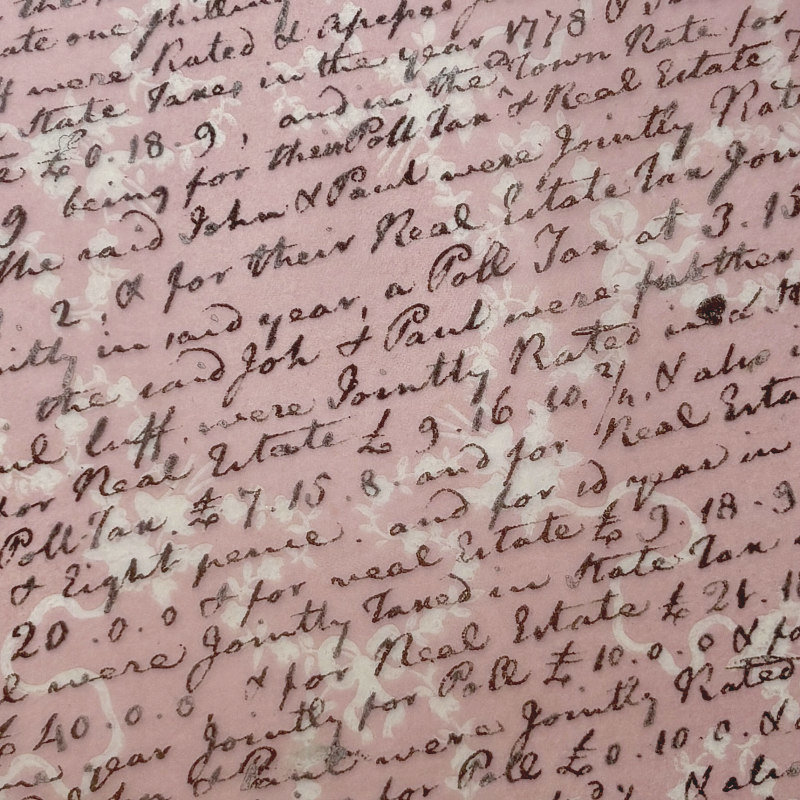 ate one shilling
ff were Rated &
State Taxes in the year 1778 &
£0.18.9, and in the Town Rate for
9 being for their Poll Tax & Real Estate
The said John & Paul were Jointly Rat
2, & for their Real Estate Tax Join
ntly in said year, a Poll Tax at 3.15
the said Joh & Paul were further
ul luff were Jointly Rated in a
for Real Estate £ 9.16.10.2/4. & also
Poll Tax. £ 7.15.8. and for Real Esta
& Eight pence. and for sd year in
20.0.0 & for real Estate £ 9.18.9
l were Jointly Taxed in State Tax
£ 40.0.0, & for Real Estate £ 21.1
me year Jointly for Poll £ 10.0.0 & fo
John & Paul were Jointly Rated
for Poll £0.10.0. &
& also